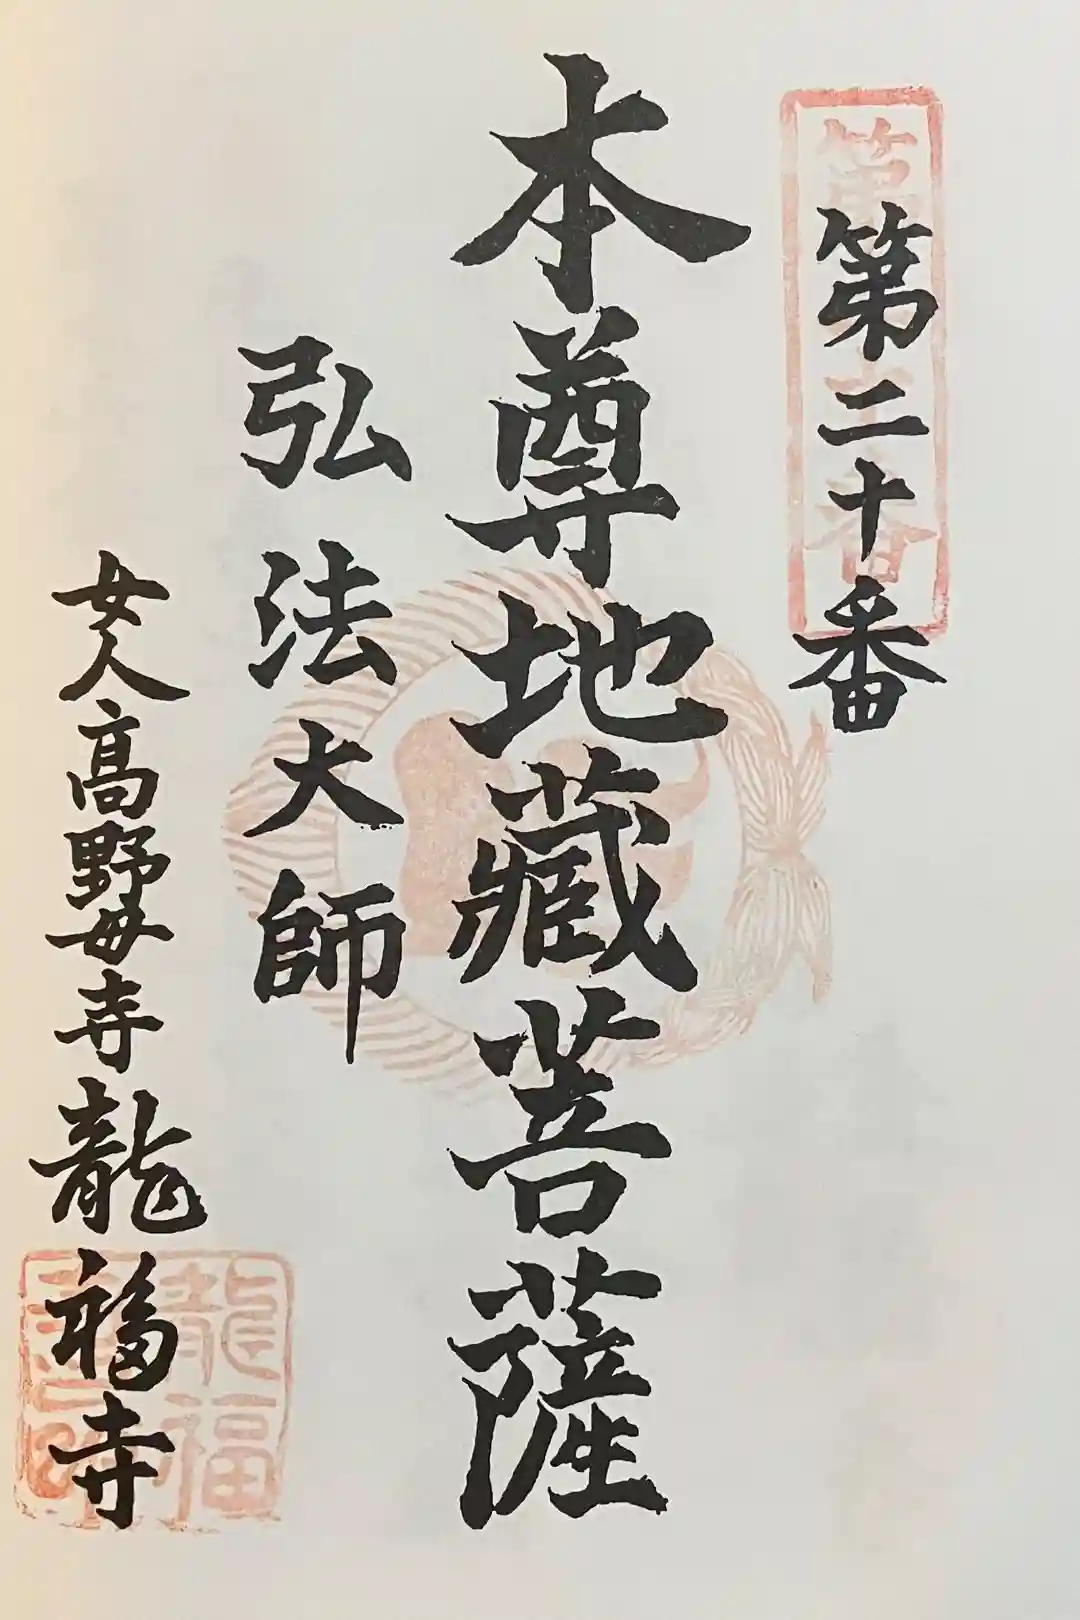 第二十番
本尊地藏菩薩
弘法大師
女人高野毎寺龍福寺
龍福
寺印